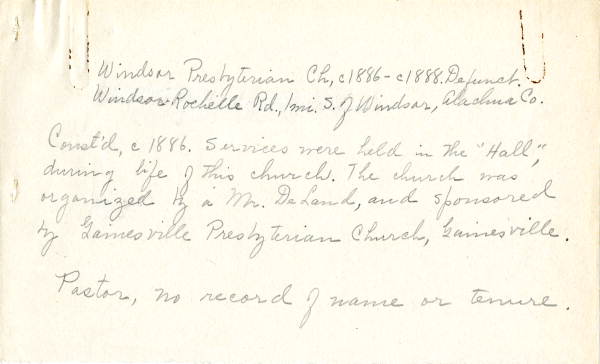 Windsor Presbyterian Ch, c1886-c1888. Defunct.
Windsor-Rochelle Rd., 1 mi. S. of Windsor, Alachua Co.
Const'd, c 1886. Services were held in the "Hall",
during life of this church. The church was
organized by a Mr. DeLand, and sponsored
by Gainesville Presbyterian Church, Gainesville.
Pastor, no record of name or tenure.